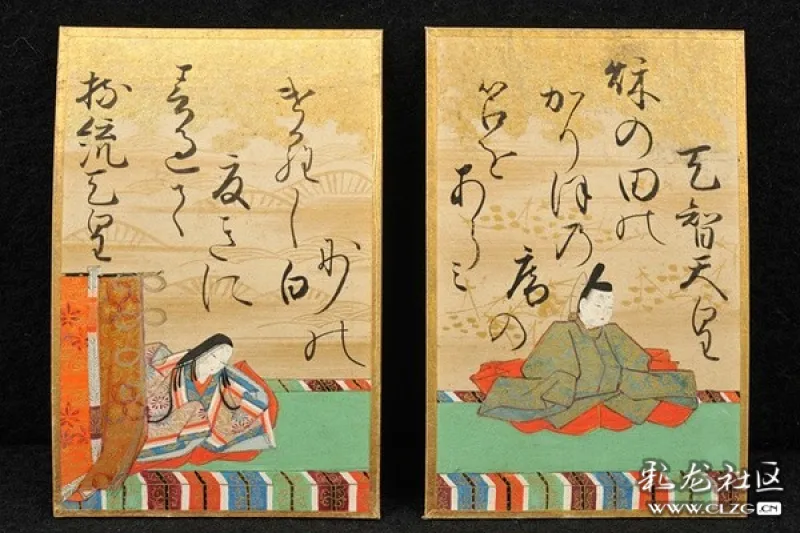 天智天皇
秋の田の
かりほ乃
庵の
苫を
あらミ
持統天皇
春過て
夏きに
けらし白
妙の
彩龙社区
WWW.CLZG.CN